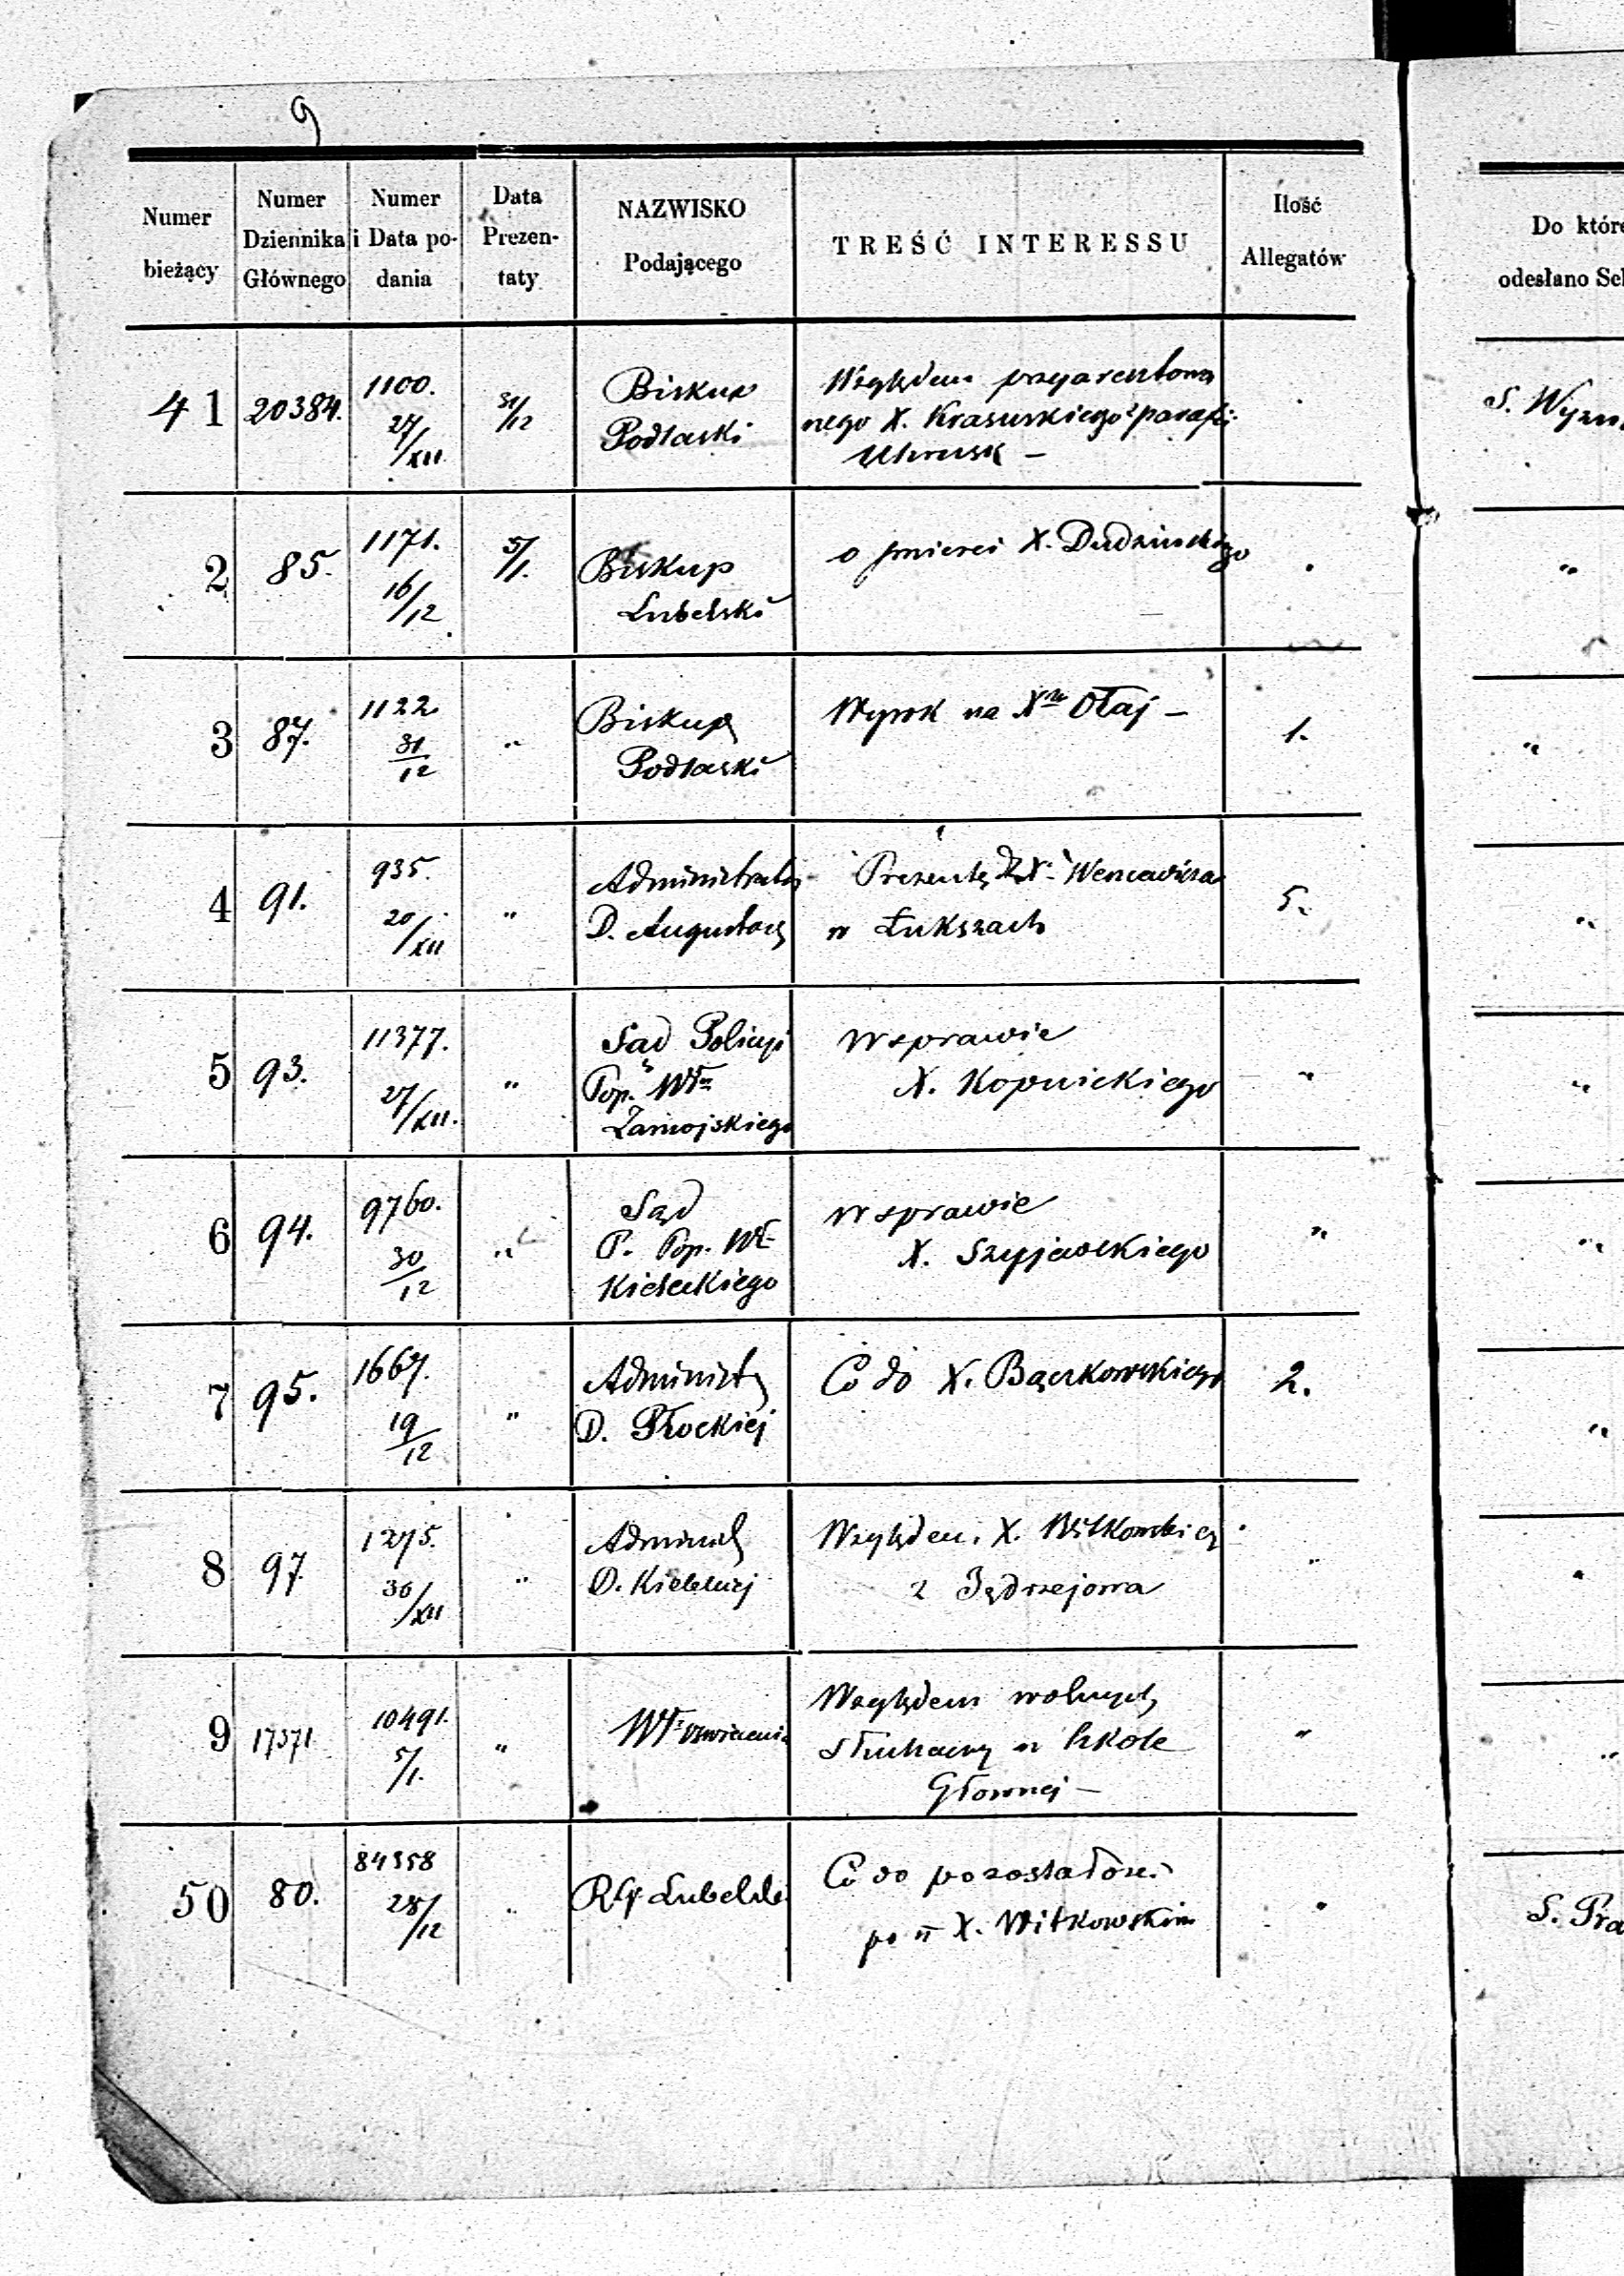 9
Numer bieżący
Numer Dziennika Głównego
Numer i Data podania
Data Prezentaty
NAZWISKO Podającego
TREŚĆ INTERESSU
Ilość Allegatów
Do które
odesłano Sek
41 20384. 1100. 27/XII 31/12
Biskup
Podlaski
Względem przyaresztowa
nego X. Krasuskiego z parafii
Uhrusk –
S. Wyzn
2 85. 1171. 16/12 5/1.
Biskup
Lubelski
o śmierci X. Dudzińskiego
"
3 87. 1122 31/12 "
Biskup
Podlaski
Wyrok na Xa Ołaj –
1.
"
4 91. 935. 20/XII "
Administrator
D. Augustows
Prezentę dla X. Wencewicza
w Łukszach
5.
"
5 93. 11377. 27/XII. "
Sąd Policyi
Pop. Wł
Zamojskiego
W sprawie
X. Kopnickiego
"
"
6 94. 9760. 30/12 "
Sąd
P. Pop. Wł
Kieleckiego
W sprawie
X. Szyjewskiego
"
"
7 95. 1667. 19/12 "
Administ
D. Płockiej
Co do X. Bączkowskiego
2.
"
8 97 1275. 30/XII "
Adminis
D. Kieleckiej
Względem X. Witkowskieg
z Jędrzejowa
"
"
9 17371 10491. 5/1. "
Wł Oświecenia
Względem wolnych
słuchaczy w Szkole
Głównej –
"
"
50 80. 84358 28/12 "
RG Lubelski
Co do pozostałości
po ś X. Witkowskim
"
S. Pra